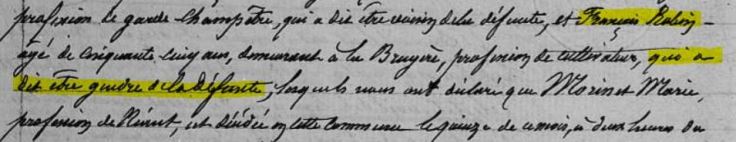 profession de garde champêtre, qui a dit être voisin de la défunte, et François Robin,
agé de cinquante cinq ans, demeurant à la Bruyère, profession de cultivateur, qui a
dit être gendre de la défunte; lesquels nous ont déclaré que Morinet Marie,
profession de, est décédée en cette commune le quinze de ce mois, à deux heures du